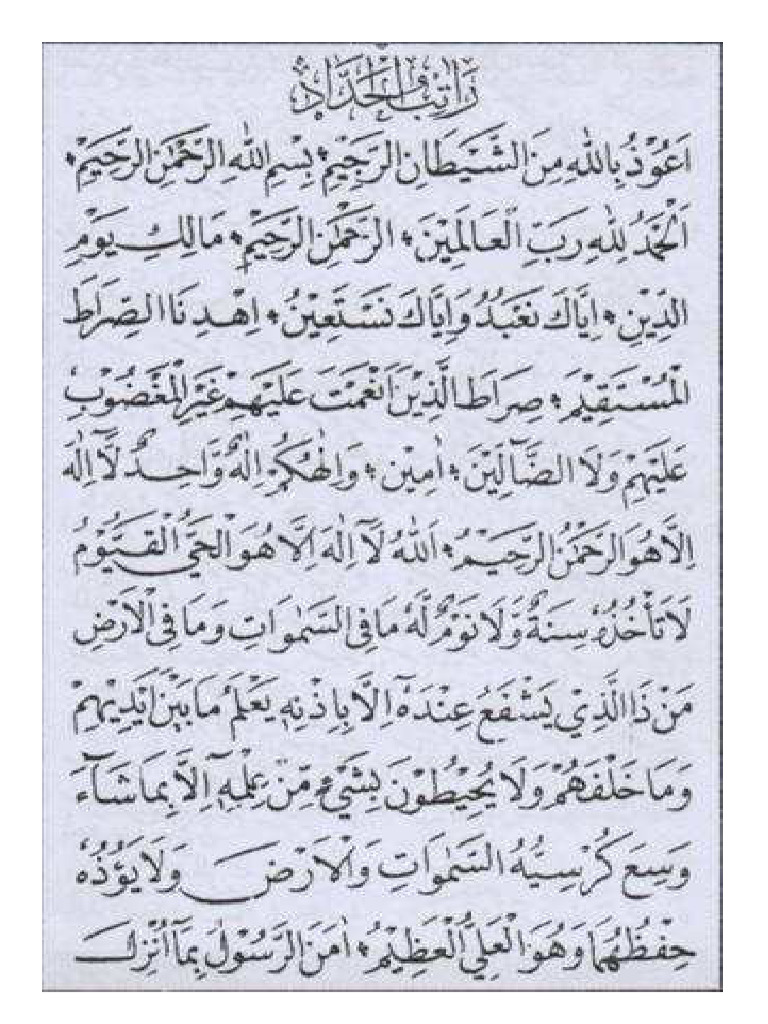 رَاتِبُ الْحَدَّادِ
اَعُوْذُ بِاللهِ مِنَ الشَّيْطَانِ الرَّجِيْمِ ۞ بِسْمِ اللهِ الرَّحْمٰنِ الرَّحِيْمِ ۞
اَلْحَمْدُ لِلّٰهِ رَبِّ الْعَالَمِيْنَ ۞ الرَّحْمٰنِ الرَّحِيْمِ ۞ مَالِكِ يَوْمِ
الدِّيْنِ ۞ اِيَّاكَ نَعْبُدُ وَاِيَّاكَ نَسْتَعِيْنُ ۞ اِهْدِنَا الصِّرَاطَ
الْمُسْتَقِيْمَ ۞ صِرَاطَ الَّذِيْنَ اَنْعَمْتَ عَلَيْهِمْ غَيْرِ الْمَغْضُوْبِ
عَلَيْهِمْ وَلَا الضَّآلِّيْنَ ۞ اٰمِيْن ۞ وَاِلٰهُكُمْ اِلٰهٌ وَّاحِدٌ لَّآ اِلٰهَ
اِلَّا هُوَ الرَّحْمٰنُ الرَّحِيْمُ ۞ اَللهُ لَآ اِلٰهَ اِلَّا هُوَ الْحَيُّ الْقَيُّوْمُ
لَا تَأْخُذُهٗ سِنَةٌ وَّلَا نَوْمٌ لَّهٗ مَا فِى السَّمٰوَاتِ وَمَا فِى الْاَرْضِ
مَنْ ذَا الَّذِيْ يَشْفَعُ عِنْدَهٗٓ اِلَّا بِاِذْنِهٖ يَعْلَمُ مَا بَيْنَ اَيْدِيْهِمْ
وَمَا خَلْفَهُمْ وَلَا يُحِيْطُوْنَ بِشَيْءٍ مِّنْ عِلْمِهٖٓ اِلَّا بِمَا شَآءَ
وَسِعَ كُرْسِيُّهُ السَّمٰوَاتِ وَالْاَرْضَ وَلَا يَؤُدُهٗ
حِفْظُهُمَا وَهُوَ الْعَلِيُّ الْعَظِيْمُ ۞ اٰمَنَ الرَّسُوْلُ بِمَآ اُنْزِلَ